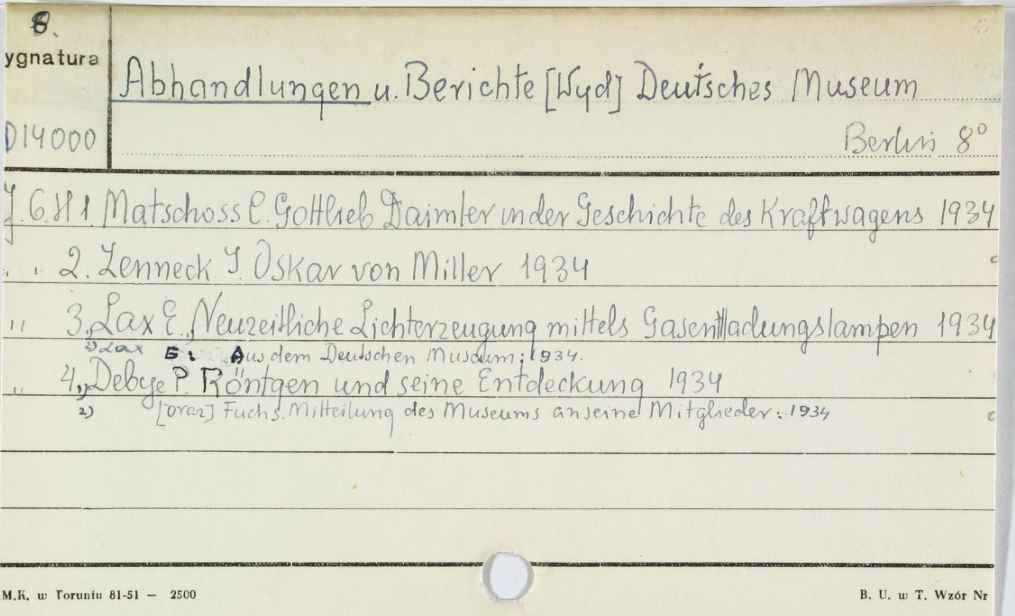 8.
ygnatura
Abhandlungen u. Berichte [Wyd] Deutsches Museum
D14000
Berlin 8°
J. 6 H 1 Matschoss C. Gottlieb Daimler in der Geschichte des Kraftwagens 1934
" " 2. Zenneck J. Oskar von Miller 1934
" 3. Lax E. Neuzeitliche Lichterzeugung mittels Gasentladungslampen 1934
2) Lax E: Aus dem Deutschen Museum; 1934.
" 4. 1) Debye P. Röntgen und seine Entdeckung 1934
2) [oraz] Fuchs. Mitteilung des Museums an seine Mitglieder: 1934
M.K. w Toruniu 81-51 — 2500
B. U. w T. Wzór Nr